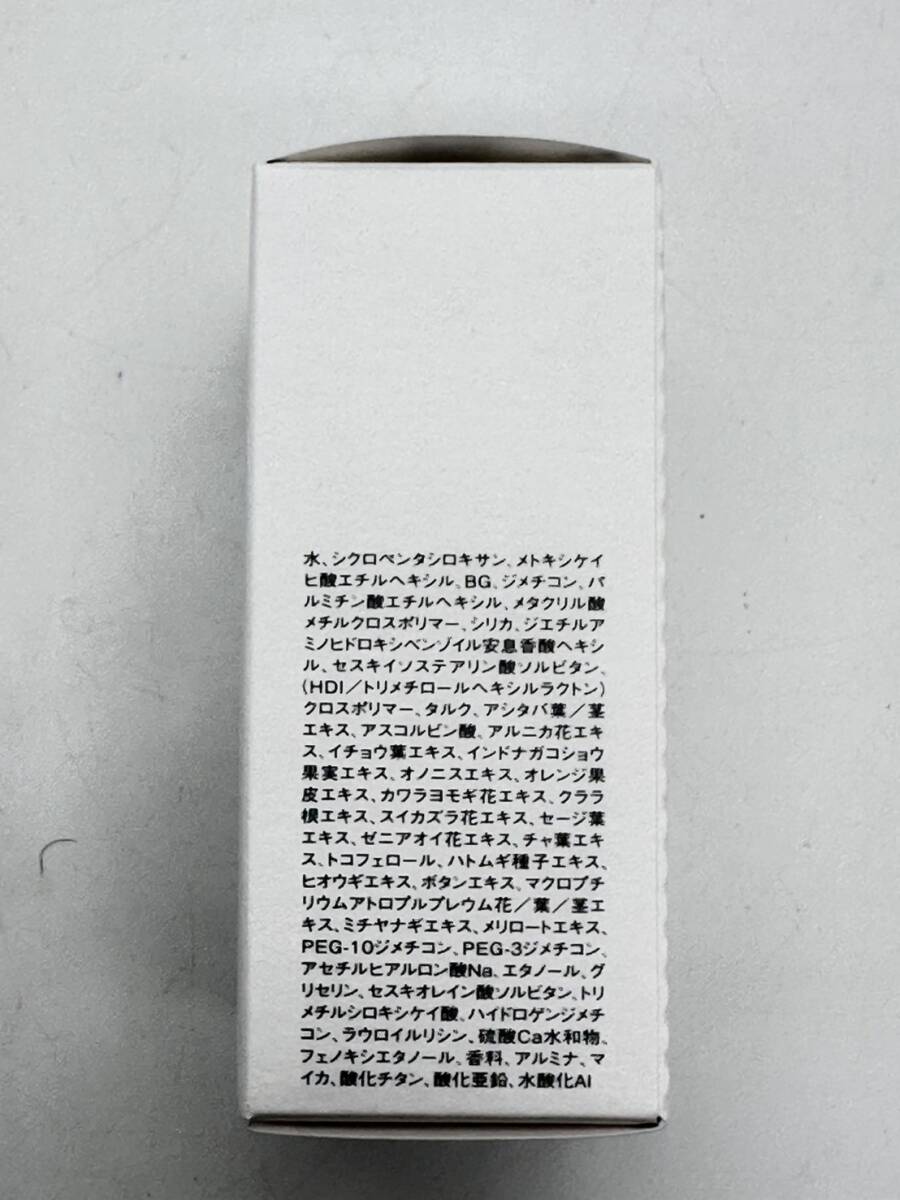 水、シクロペンタシロキサン、メトキシケイ
ヒ酸エチルヘキシル、BG、ジメチコン、パ
ルミチン酸エチルヘキシル、メタクリル酸
メチルクロスポリマー、シリカ、ジエチルア
ミノヒドロキシベンゾイル安息香酸ヘキシ
ル、セスキイソステアリン酸ソルビタン、
(HDI/トリメチロールヘキシルラクトン)
クロスポリマー、タルク、アシタバ葉/茎
エキス、アスコルビン酸、アルニカ花エキ
ス、イチョウ葉エキス、インドナガコショウ
果実エキス、オノニスエキス、オレンジ果
皮エキス、カワラヨモギ花エキス、クララ
根エキス、スイカズラ花エキス、セージ葉
エキス、ゼニアオイ花エキス、チャ葉エキ
ス、トコフェロール、ハトムギ種子エキス、
ヒオウギエキス、ボタンエキス、マクロプチ
リウムアトロプルプレウム花/葉/茎エ
キス、ミチヤナギエキス、メリロートエキス、
PEG-10ジメチコン、PEG-3ジメチコン、
アセチルヒアルロン酸Na、エタノール、グ
リセリン、セスキオレイン酸ソルビタン、トリ
メチルシロキシケイ酸、ハイドロゲンジメチ
コン、ラウロイルリシン、硫酸Ca水和物、
フェノキシエタノール、香料、アルミナ、マ
イカ、酸化チタン、酸化亜鉛、水酸化Al